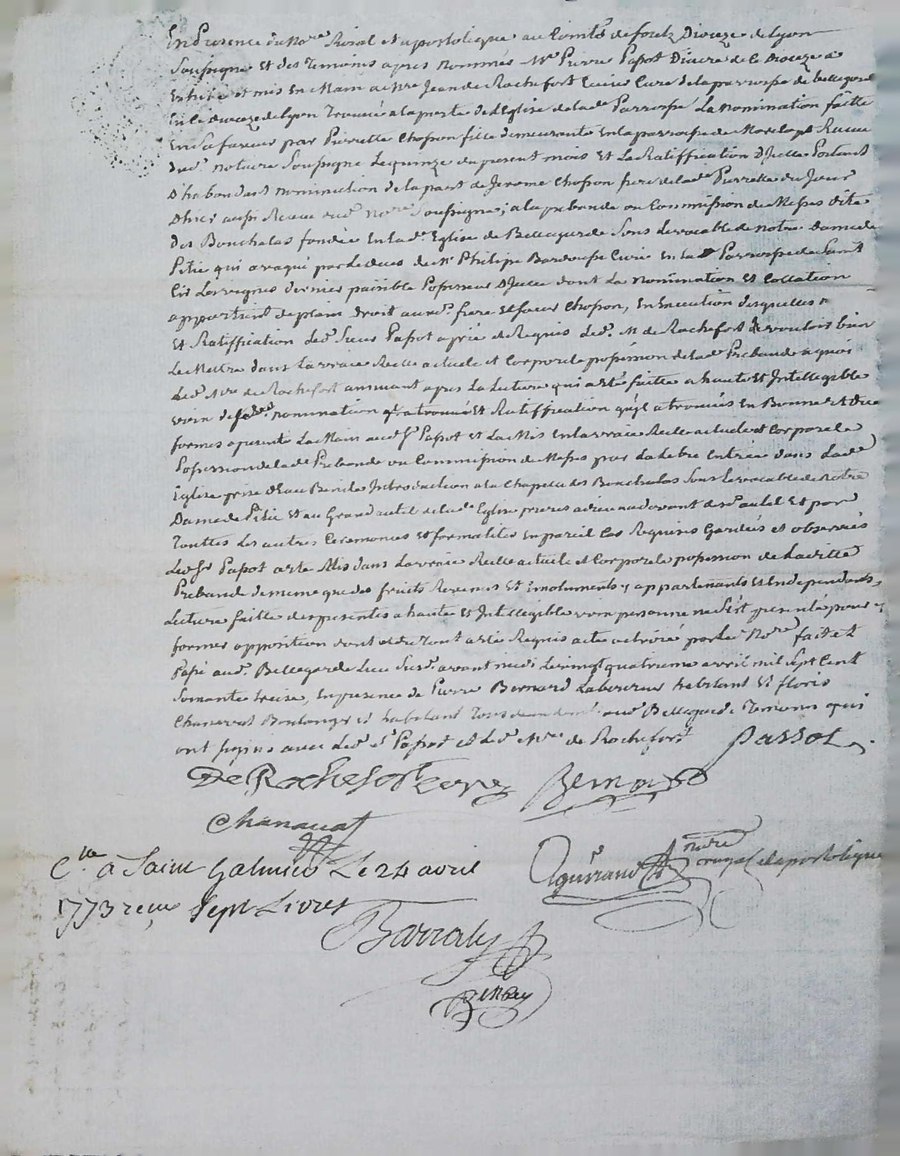 En Presence du No.re Roial et apostolique au Comté de forelz Dioceze de Lyon
Soussigné Et des Temoins apres nommés M.re Pierre Papot Diacre de ce Dioceze a
et mis En Main a M.re Jean de Rochefort Curé de la parroisse de bellegarde
En ce dioceze de Lyon Trouvé a la porte de L'Eglise de lad.e Parroisse La Nomination faitte
En sa faveur par Pierrette Chofson fille demeurante En la parroisse de Reçue
dud.t notaire Soussigné Lequinze du present mois Et La Ratiffication D'Icelle Portant
D'habondant nomination de la part de Jerome Chofson frere de lad.e Pierrette du Jour
D'hier aussi Receue dud.t No.re Soussigné; a la prebande ou Commission de Messes dite
Des Bouchalas fondée En lad.e Eglise de Bellegarde Sous Le vocable de notre Dame de
Pitié qui a vaqué par le deces de M.r Philipe Curé En la Parroisse de Saint
Cir Les vignes dernier paisible Possesseur D'Icelle dont La Nomination Et Collation
appartient de plain droit auxd. frere Et sœur Chofson, En Execution desquelles
Et Ratiffication led.t Sieur Papot a prié et Requis led.t M. de Rochefort de vouloir bien
Le Mettre dans La vraie Reelle actuelle et Corporele possession de lad.e Prebande a quoi
led.t M.re de Rochefort annuant apres La Lecture qui a eté faitte a haute Et Intelligible
voix de lad.e nomination Et Ratiffication qu'il a trouvées En Bonne et Due
formes a pris La Main aud. S.r Papot et La Mis En la vraie Reelle actuelle et Corporele
Possession de lad.e Prebande ou Commission de Messes par La Libre Entrée dans Lad.e
Eglise prise D'Eau Benite Introduction a la Chapelle des Bouchalas Sous Le vocable de Notre
Dame de Pitié Et au Grand autel de lad.e Eglise prieres a dieu au devant dud.t autel Et par
Touttes Les autres Ceremonies et formalités En pareil Cas Requises Gardées et observées
led. S.r Papot a eté Mis dans La vraie Reelle actuelle et Corporele possession de Laditte
Prebande de meme que des fruits Revenus Et Emoluments y appartenants Et En dependants,
Lecture faitte des presentes a haute et Intelligible voix personne ne s'est presenté pour y
former opposition dont et du Tout a eté Requis acte octroié par led. No.re fait et
Passé aud.t Bellegarde Lieu Susd.t avant midi Le vingt quatrieme avril mil Sept Cent
Soixante treize, En presence de Pierre Bernard Laboureur habitant Et floris
Chanavat Boulanger et habitant Tous deux aud.t Bellegarde Temoins qui
ont signés avec led.t S.r Papot et led.t M.re de Rochefort
passot
De Rochefort curé Bernard
Chanavat
C.lle à Saint Galmier Le 24 avril
1773 reçu Sept Livres
notre royal et apostolique
Barraly